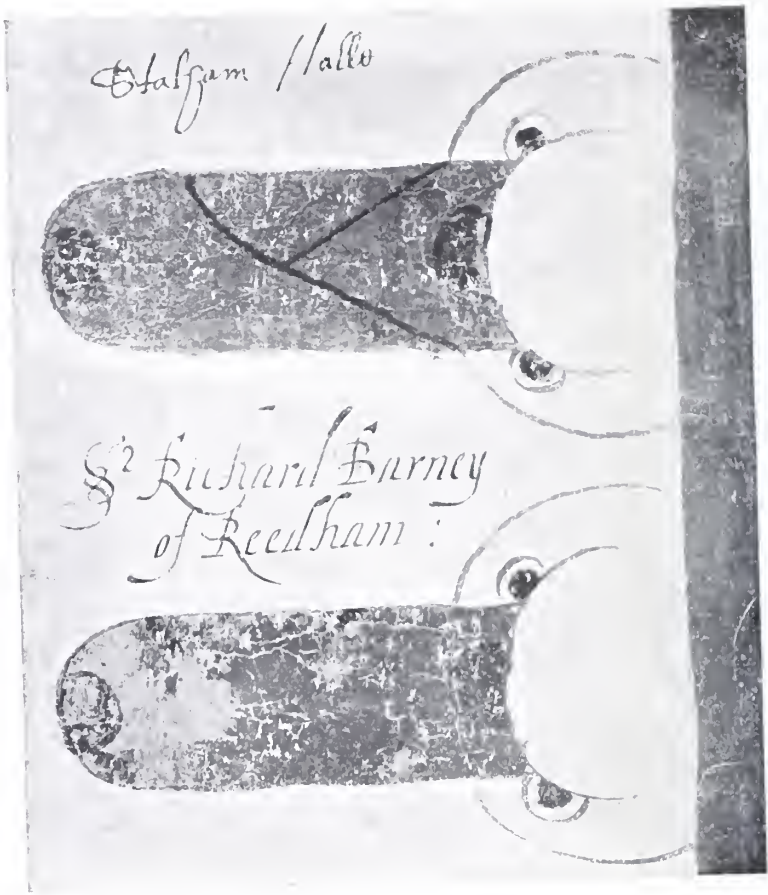 Stalham Halle
Sr Richard Barney
of Reedham :